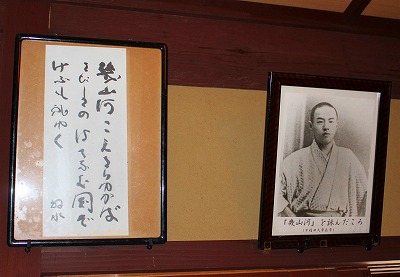 幾山河こえさりゆかば
さびしさのはてなむ国ぞ
けふも旅ゆく
牧水
「幾山河」を詠んだころ